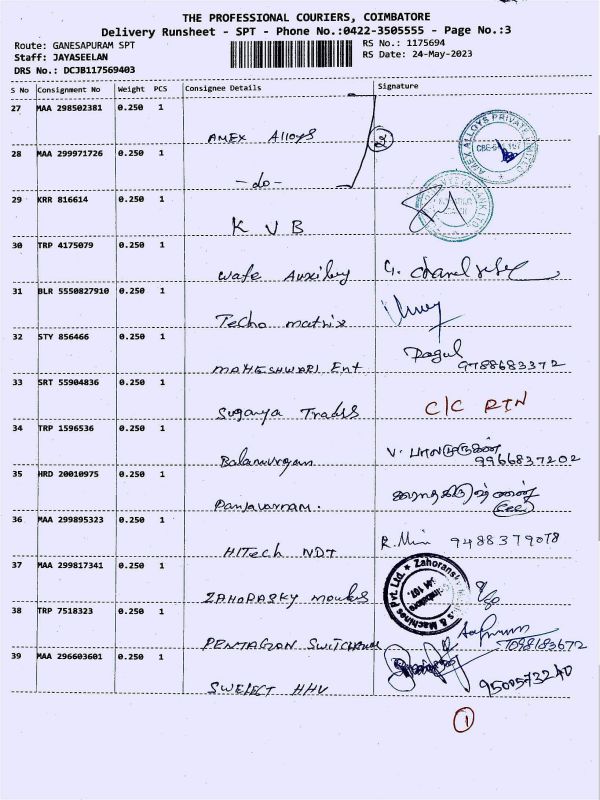 THE PROFESSIONAL COURIERS, COIMBATORE
Delivery Runsheet - SPT - Phone No.:0422-3505555 - Page No.:3
Route: GANESAPURAM SPT
RS No.: 1175694
Staff: JAYASEELAN
RS Date: 24-May-2023
DRS No.: DCJB117569403
S No Consignment No Weight PCS Consignee Details Signature
27 MAA 298502381 0.250 1
AMEX Alloys 2
AMEX ALLOYS PRIVATE LIMITED
28 MAA 299971726 0.250 1
-do-
29 KRR 816614 0.250 1
K V B
30 TRP 4175079 0.250 1
Wafe Auxiliary G.
31 BLR 5550827910 0.250 1
Techo matrix
32 STY 856466 0.250 1
MAHESHWARI Ent Ragul
9788683372
33 SRT 55904836 0.250 1
Suganya Trades C/C RTN
34 TRP 1596536 0.250 1
Balamurugan V. பாலமுருகன்
9966837202
35 HRD 20010975 0.250 1
Panjavarnam.
36 MAA 299895323 0.250 1
HiTech NDT R. Mini 9488379078
37 MAA 299817341 0.250 1
ZAHORASKY moulds
Zahoransky Moulds & Machines Pvt. Ltd.
38 TRP 7518323 0.250 1
PENTAGON SWITCHGEAR
7098183672
39 MAA 296603601 0.250 1
SWELECT HHV 9500573240
1